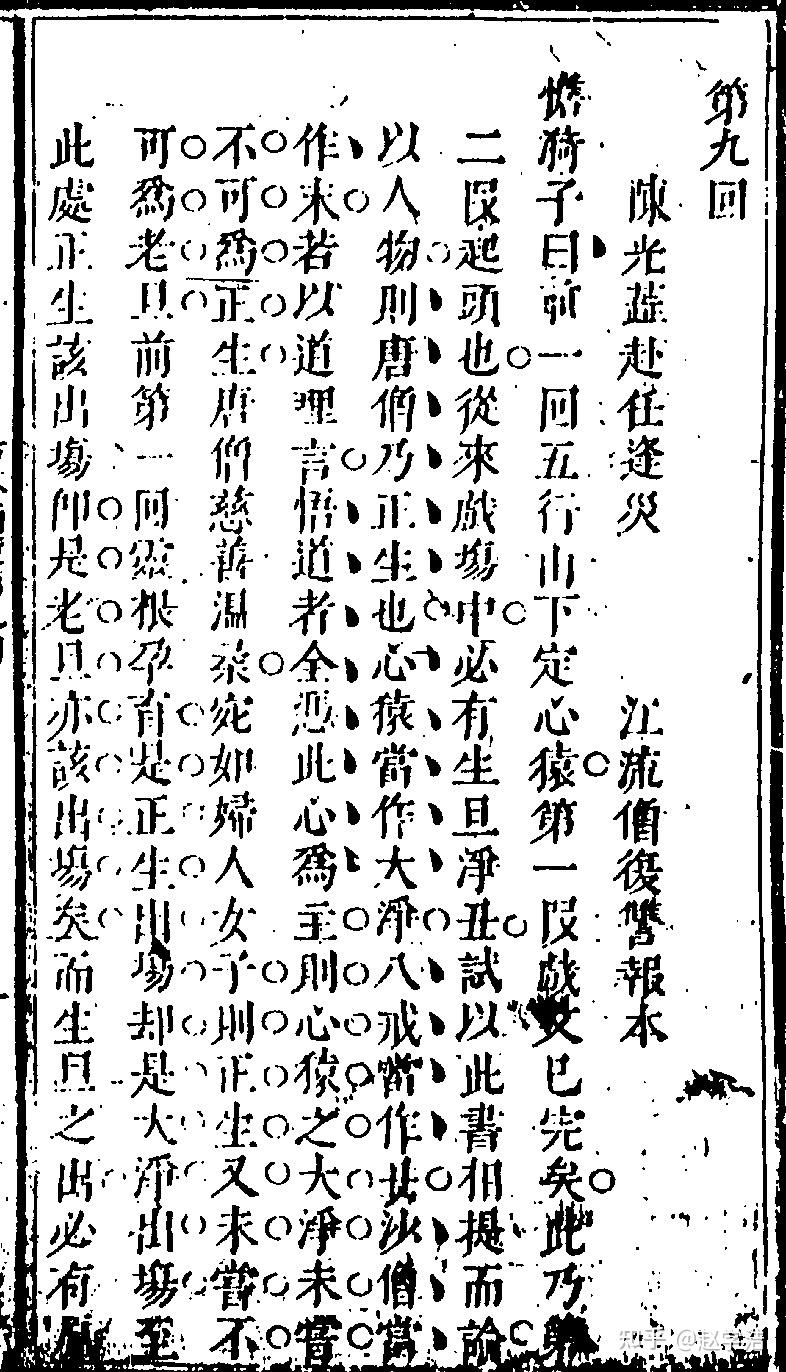 第九回
陳光蕊赴任逢災　江流僧復讐報本
憺漪子曰前一回五行山下定心猿第一段戲文已完矣此乃第
二段起頭也從來戲場中必有生旦淨丑試以此書相提而論
以人物則唐僧乃正生也心猿當作大淨八戒當作丑沙僧當
作末若以道理言悟道者全憑此心爲主則心猿之大淨未嘗
不可爲正生唐僧慈善溫柔宛如婦人女子則正生又未嘗不
可爲老旦前第一回靈根孕育是正生出場却是大淨出場至
此處正生該出場卽是老旦亦該出場矣而生旦之出必有
知乎